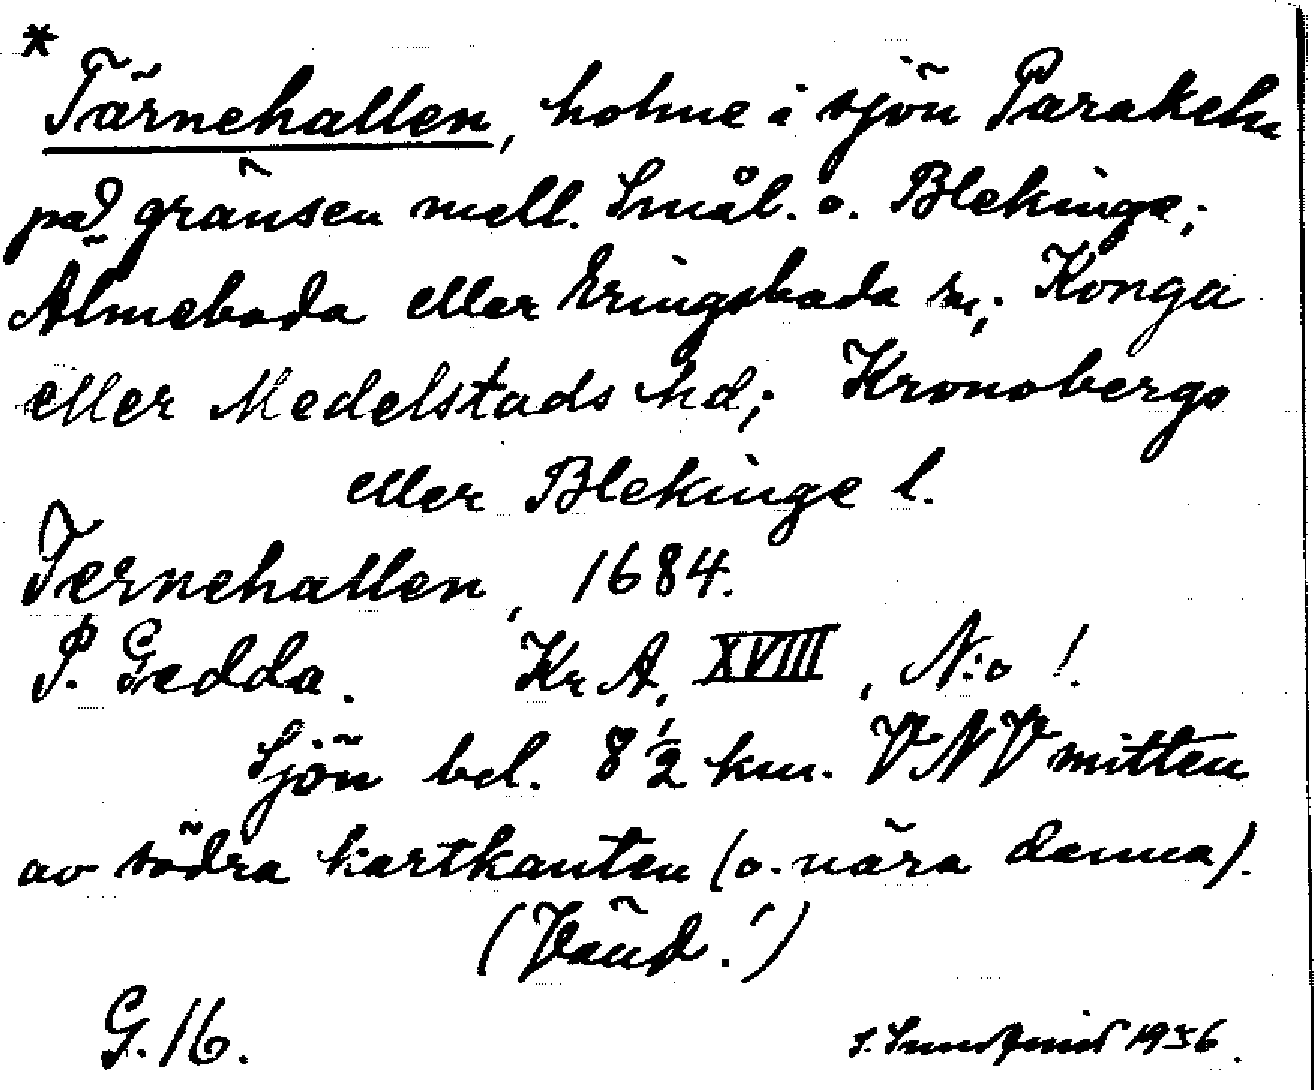 *
Tärnehallen, holme i sjön Parakeln
på gränsen mell. Smål. o. Blekinge;
Älmeboda eller Eringsboda sn; Konga
eller Medelstads hd; Kronobergs
eller Blekinge l.
Ternehallen, 1684.
P. Gedda. Kr A, XVIII, N:o 1.
Sjön bel. 8 1/2 km. VNV mitten
av södra kartkanten (o. nära denna).
(Vänd!)
G. 16.
S. Sundquist 1936.